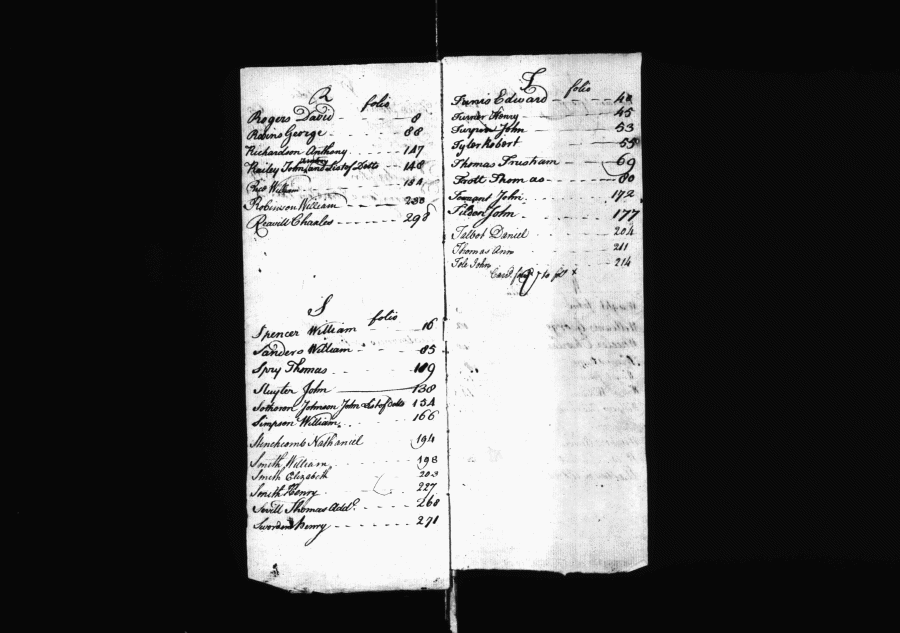 R
folio
Rogers David 8
Ravins George 88
Richardson Anthony 147
Railey John and List of Detts 148
Rice William 184
Robinson William 230
Reavill Charles 298
S
folio
Spencer William 16
Sanders William 85
Spry Thomas 109
Sluyter John 138
Sothoron Johnson John List of detts 154
Simpson William 166
Stinchcomb Nathaniel 194
Smith William 198
Smith Elizabeth 203
Smith Henry 227
Sevill Thomas Addl. 268
Henry 271
T
folio
Edward 40
Turner Henry 45
Turpin John 53
Tyler Robert 55
Thomas Trusham 69
Trott Thomas 80
John 172
Tilden John 177
Talbot Daniel 204
Thomas Ann 211
Tole John 214